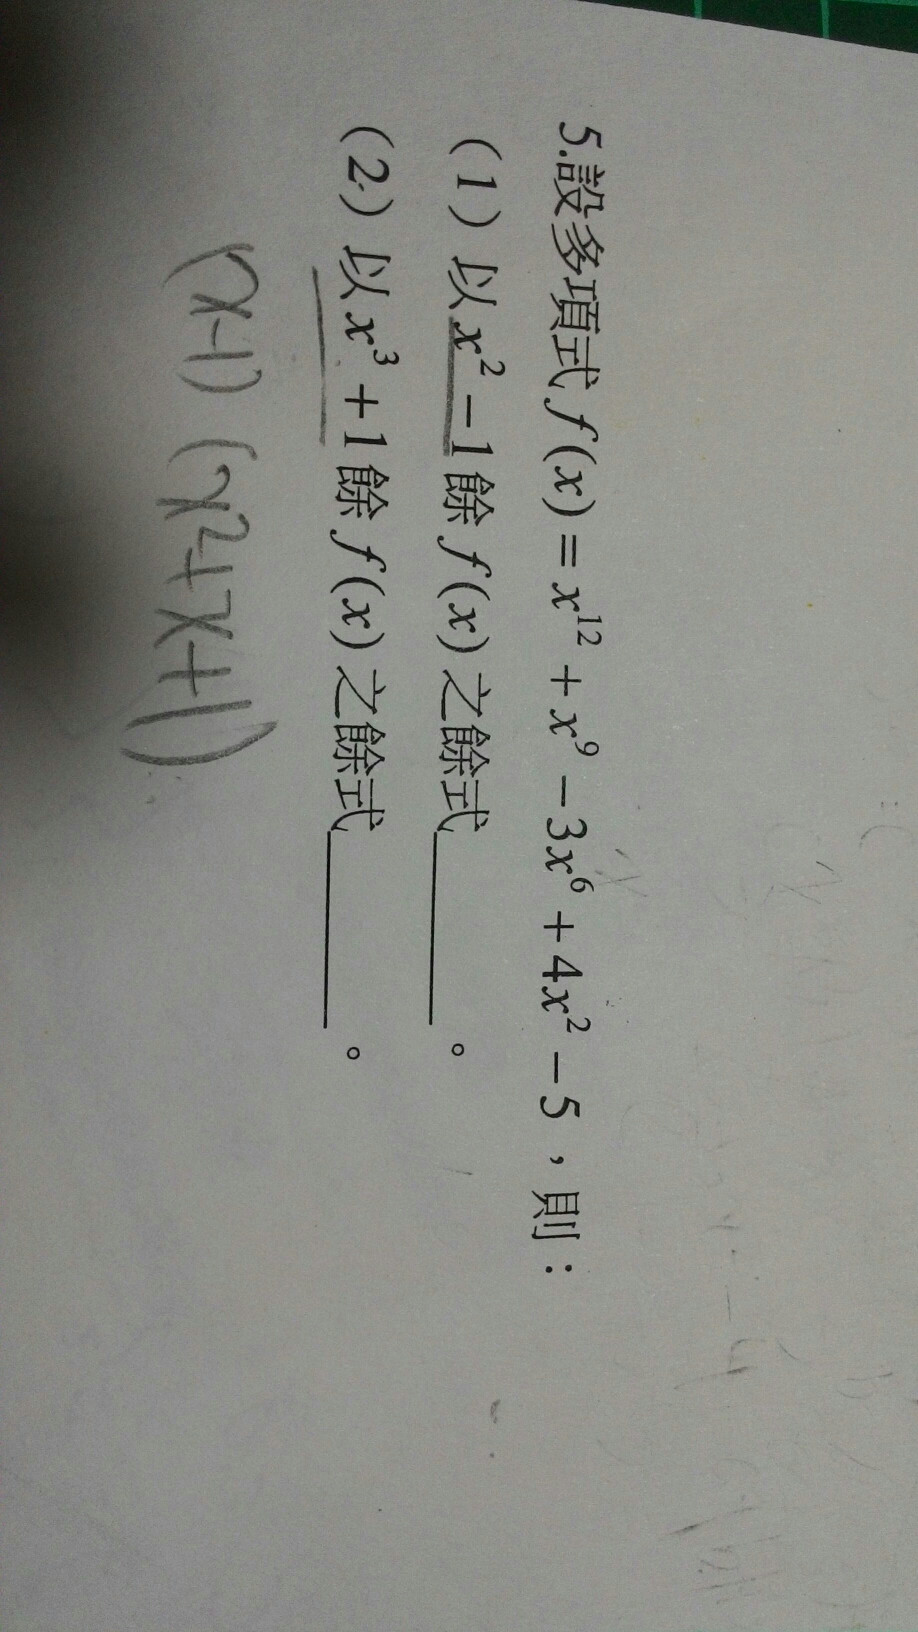 5.設多項式 f(x) = x¹² + x⁹ − 3x⁶ + 4x² − 5，則：
(1) 以 x² − 1 餘 f(x) 之餘式______。
(2) 以 x³ + 1 餘 f(x) 之餘式______。
(x-1) (x²+x+1)